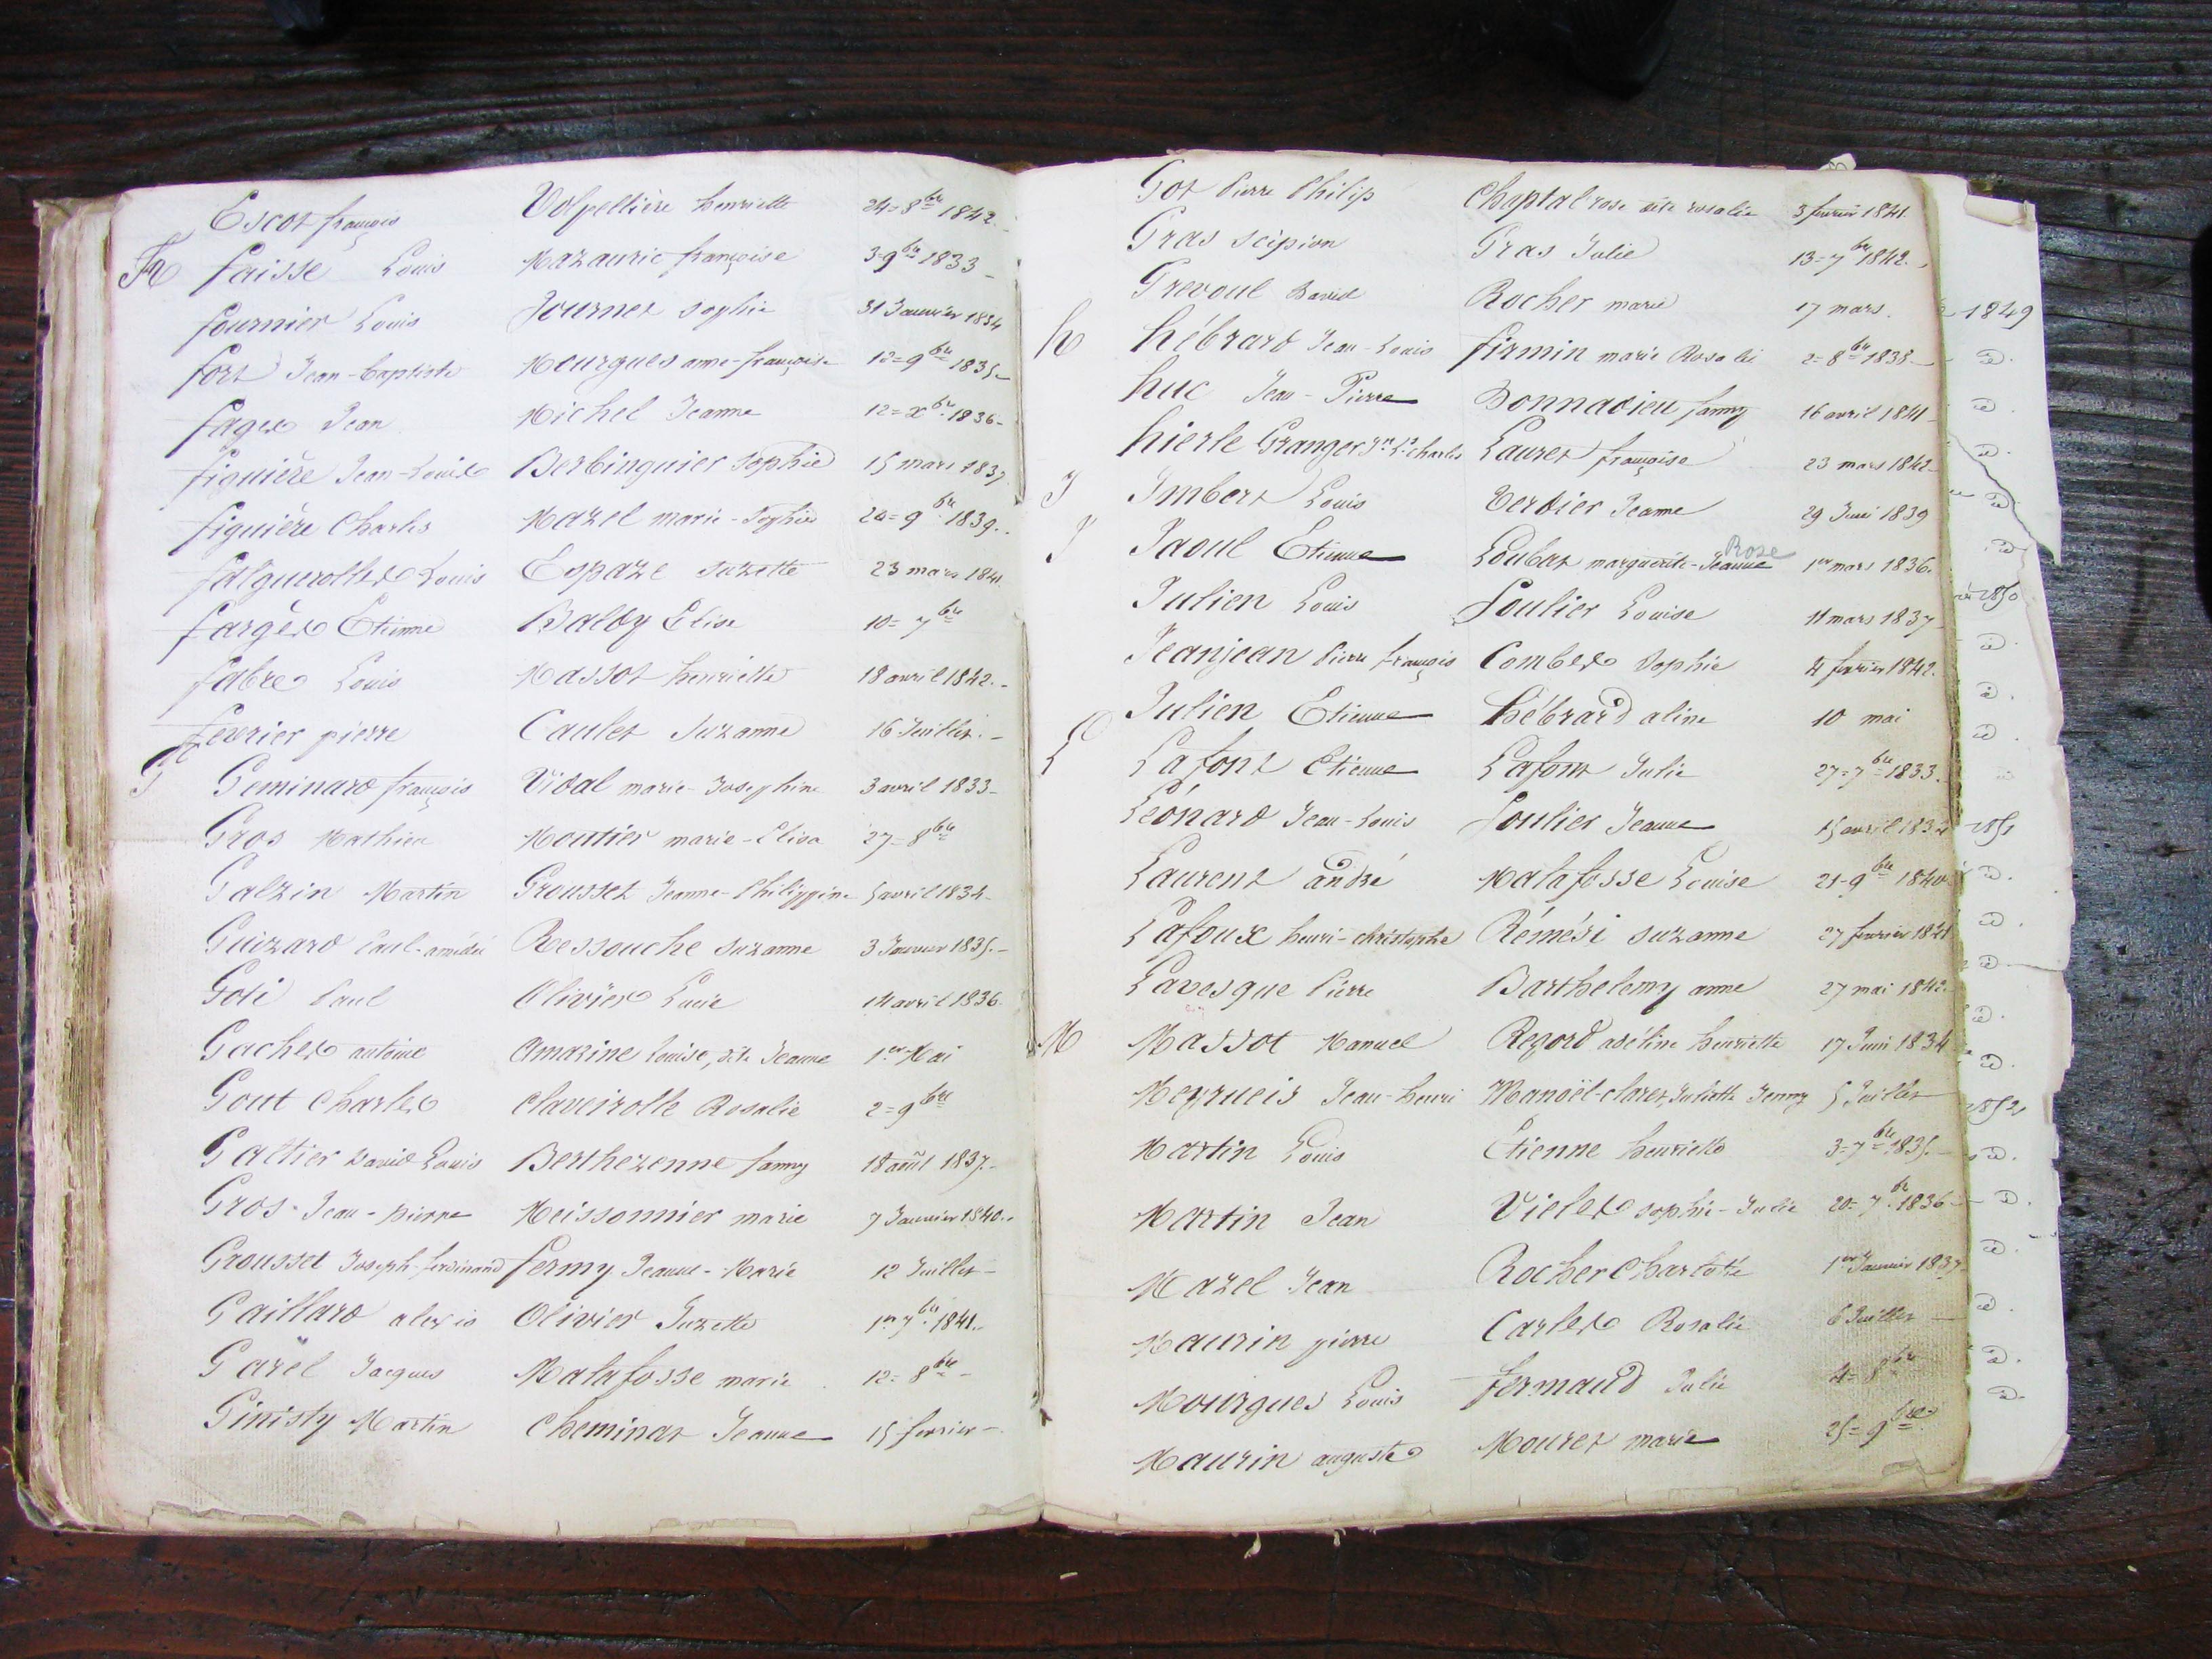 Escot françois Volpellière henriette 24=8bre 1842.
F faisse Louis Mazauric françoise 3=9bre 1833
fournier Louis Journet sophie 31 Janvier 1834
fort Jean-baptiste Mourgues anne-françoise 12=9bre 1835
fages Jean Michel Jeanne 12=xbre 1836
figuière Jean-Louis Berbinguier sophie 15 mars 1837
figuière Charles Mazel marie-Sophie 20=9bre 1839.
falguerolles Louis Espaze suzette 23 mars 1841.
farges Etienne Balby Elise 10=7bre
fabre Louis Massot henriette 18 avril 1842.
fevrier pierre Caulet suzanne 16 Juillet.
G Geminard françois Vidal marie-Josephine 3 avril 1833
Gros Mathieu Moutier marie-Elisa 27=8bre
Galzin Martin Grousset Jeanne-Philippine 5 avril 1834
Guizard Paul-amédée Ressouche suzanne 3 Janvier 1835.
Goti Paul Olivier Lucie 14 avril 1836
Gaches antoine Amarine Louise, dite Jeanne 1er Mai
Gout Charles Claveirolle Rosalie 2=9bre
Galtier David Louis Berthezenne fanny 18 août 1837.
Gros Jean-pierre Meissonnier marie 7 Janvier 1840.
Grousset Joseph-ferdinand fermy Jeanne-Marie 12 Juillet
Gaillard alexis Olivier Suzette 1er 7bre 1841.
Garel Jacques Malafosse marie 12=8bre
Ginisty Martin Cheminat Jeanne 15 fevrier
Got Pierre Philip Chaptal rose dite rosalie 3 fevrier 1841.
Gras scipion Gras Julie 13=7bre 1842.
Grevoul David Rocher marie 17 mars.
h hébrard Jean-Louis firmin marie Rosalie 2=8bre 1838
huc Jean-Pierre Donnadieu fanny 16 avril 1841
hierle Granger Jn Ls charles Lauret françoise 23 mars 1842
I Imbert Louis Verdier Jeanne 29 Juin 1839
J Jaoul Etienne Loubat marguerite-Jeanne Rose 1er mars 1836.
Julien Louis Soulier Louise 11 mars 1837
Jeanjean Pierre françois Combes Sophie 4 fevrier 1842.
Julien Etienne hébrard aline 10 mai
L Lafont Etienne Lafont Julie 27=7bre 1833.
Léonard Jean-Louis Soulier Jeanne 15 avril 1834
Laurent andré Malafosse Louise 21=9bre 1840
Lafoux henri-christophe Rémézi suzanne 27 fevrier 1841
Lavesque Pierre Barthelemy anne 27 mai 1842.
M Massot Manuel Regord adéline henriette 17 Juin 1834
Meyrueis Jean-henri Manoël-claret, Juliette Jenny 5 Juillet
Martin Louis Etienne henriette 3=7bre 1835.
Martin Jean Vieles sophie-Julie 20=7bre 1836
Mazel Jean Rocher Charlotte 1er Janvier 1837
Maurin pierre Carles Rosalie 6 Juillet
Mourgues Louis fermaud Julie 4=8bre
Maurin auguste Mouret marie 25=9bre
1849
1850
1851
1852